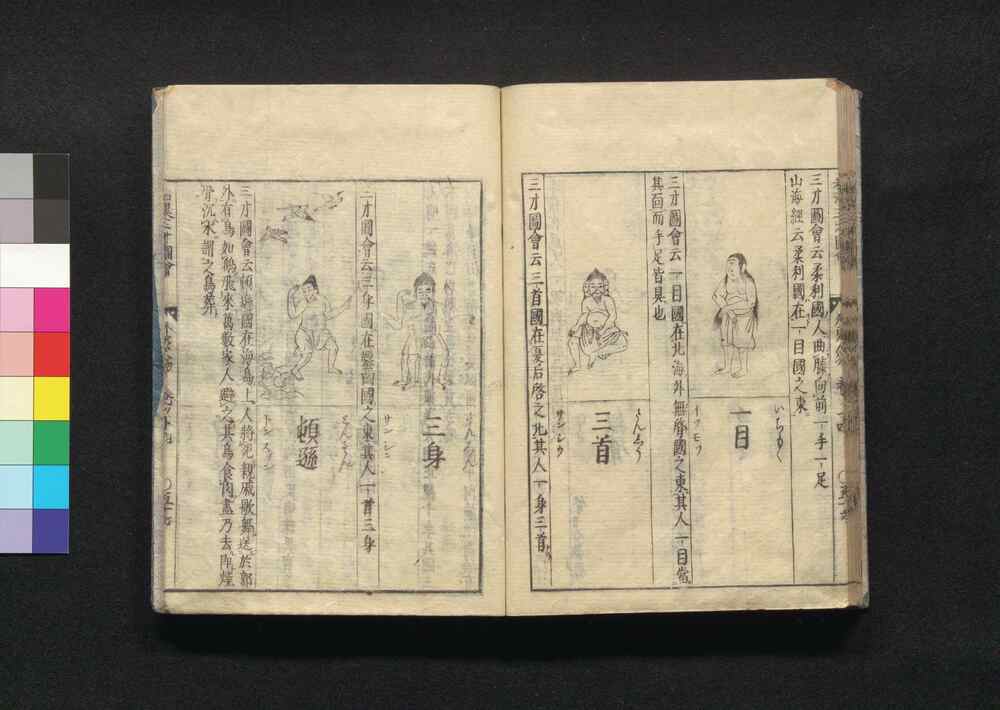 三才圖會云柔利國人曲膝向前一手一足
山海經云柔利國在一目國之東
いちもく
一目
イツモツ
三才圖會云一目國在北海外無䏿國之東其人一目當
其面而手足皆具也
さんしゆ
三首
サンシウ
三才圖會云三首國在夏后啓之北其人一身三首
さんしん
三身
サンシン
三才圖會云三身國在鑿齒國之東其人一首三身
とんそん
頓遜
トンスン
三才圖會云頓遜國在海島上人將死親戚歌舞送於郭
外有鳥如鵞飛來萬數家人避之其鳥食肉盡乃去即燒
骨沉水謂之鳥葬
和漢三才圖會